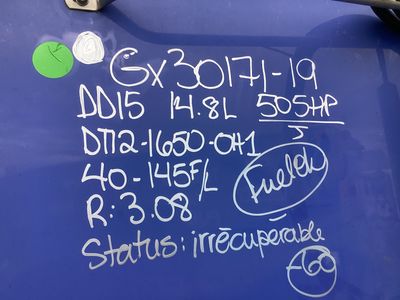 Gx30171-19
DD15 14.8L 505HP
DT12-1650-OH1 5
40-145F/L
R: 3.08
Status: irrécuperable
-60